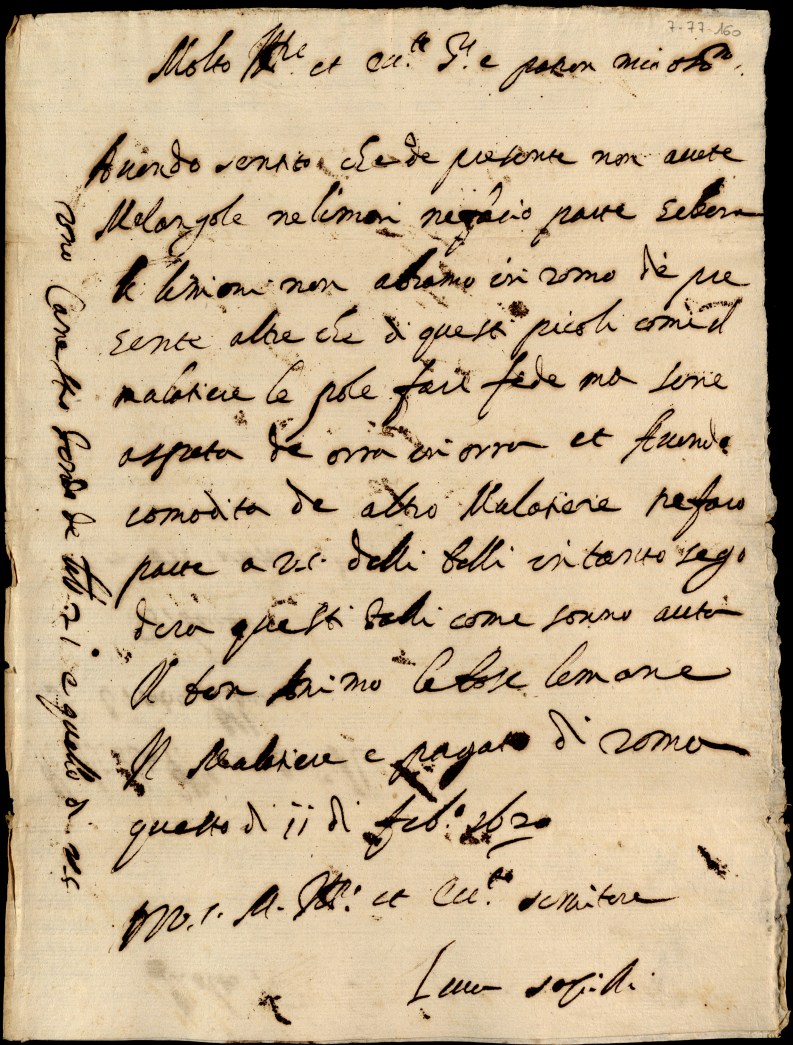 7-77-160
Molto Ill.re et Ecc.te S.r e patron mio oss.mo
Auendo sentito che de presente non auete
Melangole ne limoni negacio parte sebera
le limoni non abiamo in roma de pre
sente altre che di questi picoli come il
malatiere le pole fare fede ma sene
aspeta de orra in orra et Auendo
comodita de altro Mulatiere ne faro
parte a v.s. delli belli in tanto se go
dera questi talli come sonno auta
Il bon Animo le bone lemane
Il Mulatiere e pagato di roma
questo di 11 di feb.o 1620
D v.s. M. Ill.e et Ecc.te seruitore
Luca
uno Canestro de lib. 71 e quello di v.s